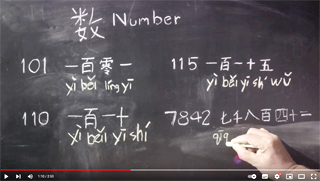 数 Number
101 一百零一
yì bǎi líng yī
115 一百一十五
yì bǎi yī shí wǔ
110 一百一十
yì bǎi yī shí
7842 七千八百四十二
qī q